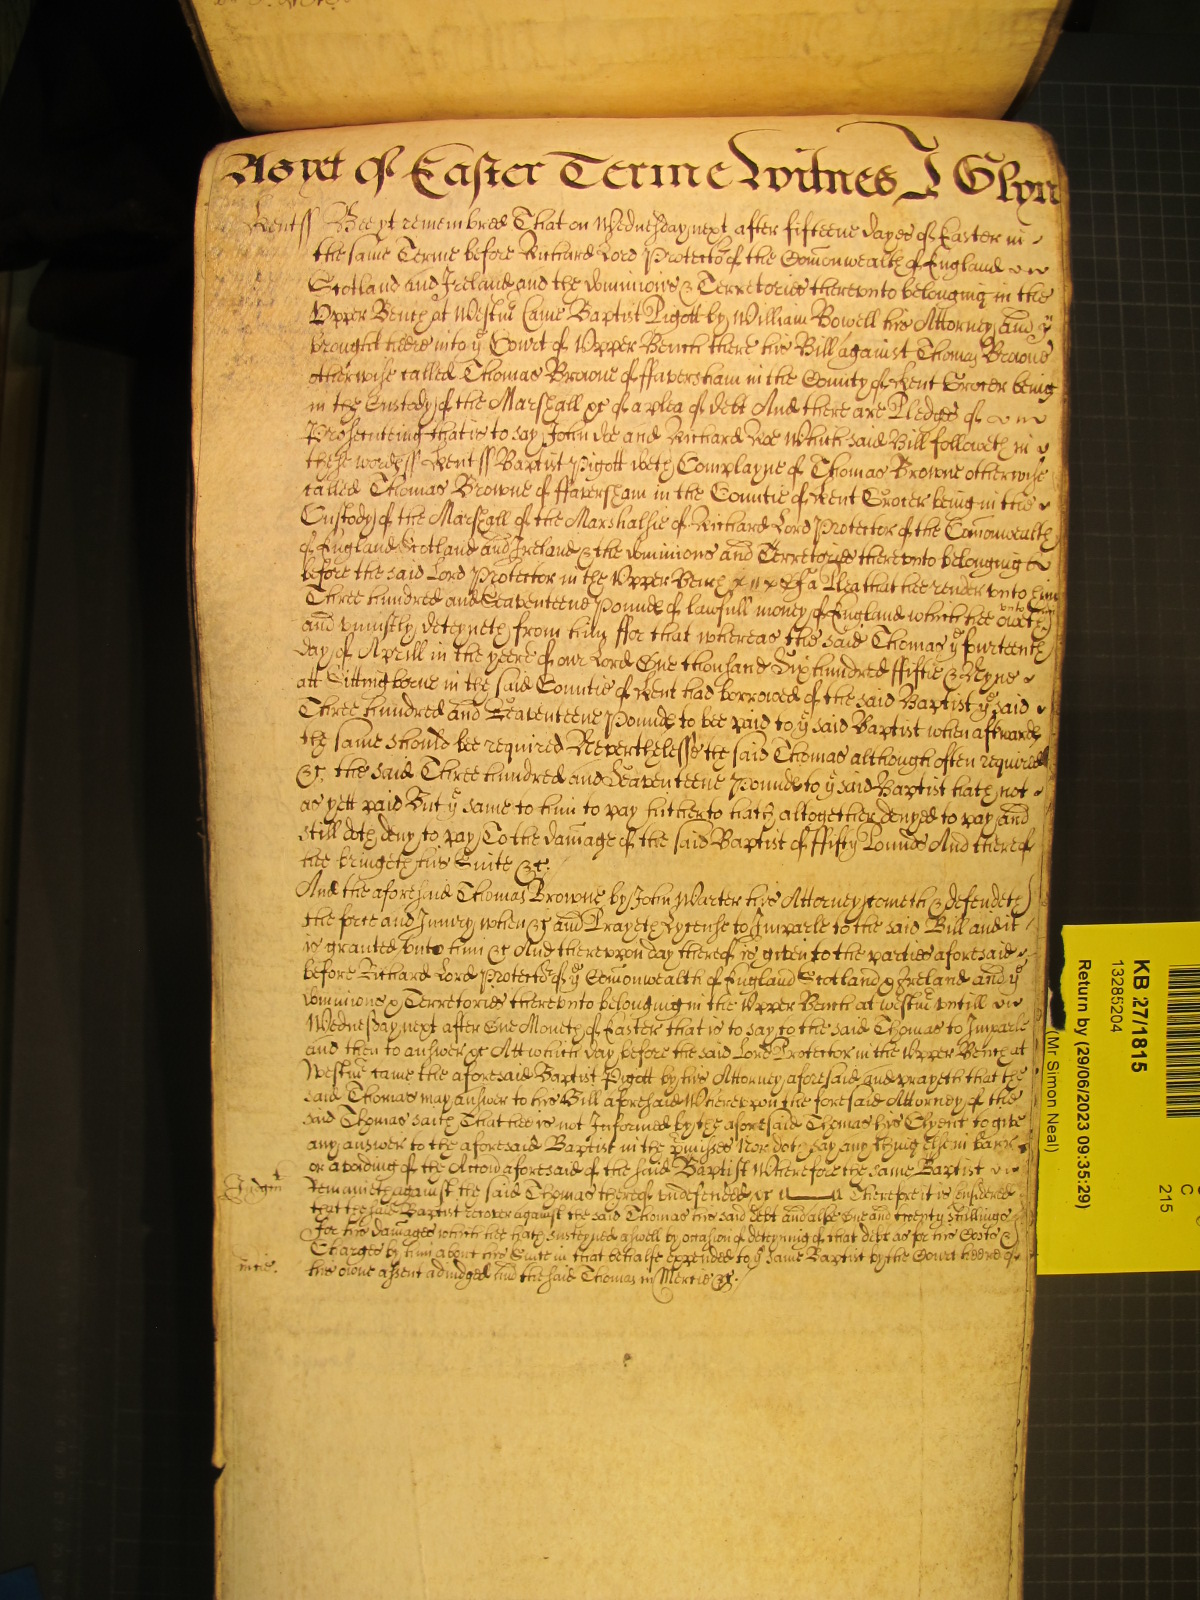 As yet of Easter Terme Witnes J Glyn
Kent ss Bee yt remembred That on Wednesday next after fifteene dayes of Easter in
the same Terme before Richard Lord Protector of the Comonwealth of England
Scotland and Ireland and the dominions & Territories thereunto belonging in the
Upper Bench at Westmr Came Baptist Pigott by William Bowell his Attorney and
brought heere into ye Court of Upper Bench there his Bill against Thomas Browne
otherwise called Thomas Browne of ffaversham in the County of Kent Grocer being
in the Custody of the Marshall &c of a plea of debt And there are Pledges of
Prosecuteing that is to say John Doe and Richard Roe Which said Bill followeth in
these words ss Kent ss Baptist Pigott doeth Complayne of Thomas Browne otherwise
called Thomas Browne of ffaversham in the Countie of Kent Grocer being in the
Custody of the Marshall of the Marshalsie of Richard Lord Protector of the Comonwealth
of England Scotland and Ireland & the dominions and Territories thereunto belonging
before the said Lord Protector in the Upper Bench of a Plea that hee render unto him
Three hundred and Seaventeene Pounds of lawfull money of England which hee oweth unto him
and uniustly deteyneth from him ffor that whereas the said Thomas ye fourteenth
day of Aprill in the yeere of our Lord One thousand Six hundred ffiftie & Nyne
att Sittingborne in the said Countie of Kent had borrowed of the said Baptist ye said
Three hundred and Seaventeene Pounds to bee paid to ye said Baptist when afterwards
the same should bee required Neverthelesse the said Thomas although often required
&c the said Three hundred and Seaventeene Pounds to ye said Baptist hath not
as yett paid But ye same to him to pay hitherto hath altogether denyed to pay and
still doth deny to pay To the damage of the said Baptist of ffifty Pounds And thereof
hee bringeth his Suite &c.
And the aforesaid Thomas Browne by John Warter his Attorney cometh & defendeth
the force and Iniury when &c and Prayeth Lycense to Imparle to the said Bill and it
is granted unto him &c And thereupon day thereof is given to the parties aforesaid
before Richard Lord Protector of ye Comonwealth of England Scotland & Ireland and ye
dominions & Territories thereunto belonging in the Upper Bench at westmr untill
Wednesday next after One Moneth of Easter that is to say to the said Thomas to Imparle
and then to answer &c Att which day before the said Lord Protector in the Upper Bench at
Westmr came the aforesaid Baptist Pigott by his Attorney aforesaid and prayeth that the
said Thomas may answer to his Bill aforesaid Whereupon the foresaid Attorney of the
said Thomas saith That hee is not Informed by the aforesaid Thomas his Clyent to give
any answer to the aforesaid Baptist in the pmisses Nor doth say any thing else in barr
or avoiding of the Accon aforesaid of the said Baptist Wherefore the same Baptist
Judgmt Remaineth against the said Thomas thereof undefended &c Therefore it is considered
that the said Baptist recover against the said Thomas his said debt and alsoe One and twenty shillings
for his damages which hee hath susteyned aswell by occasion of deteyning of that debt as for his Costs &
Charges by him about his Suite in that behalfe expended to ye same Baptist by the Court heere of
mcie. his owne assent adiudged And the said Thomas in Mercie &c.
KB 27/1815
13285204
Return by (29/06/2023 09:35:29)
(Mr Simon Neal)
C
215